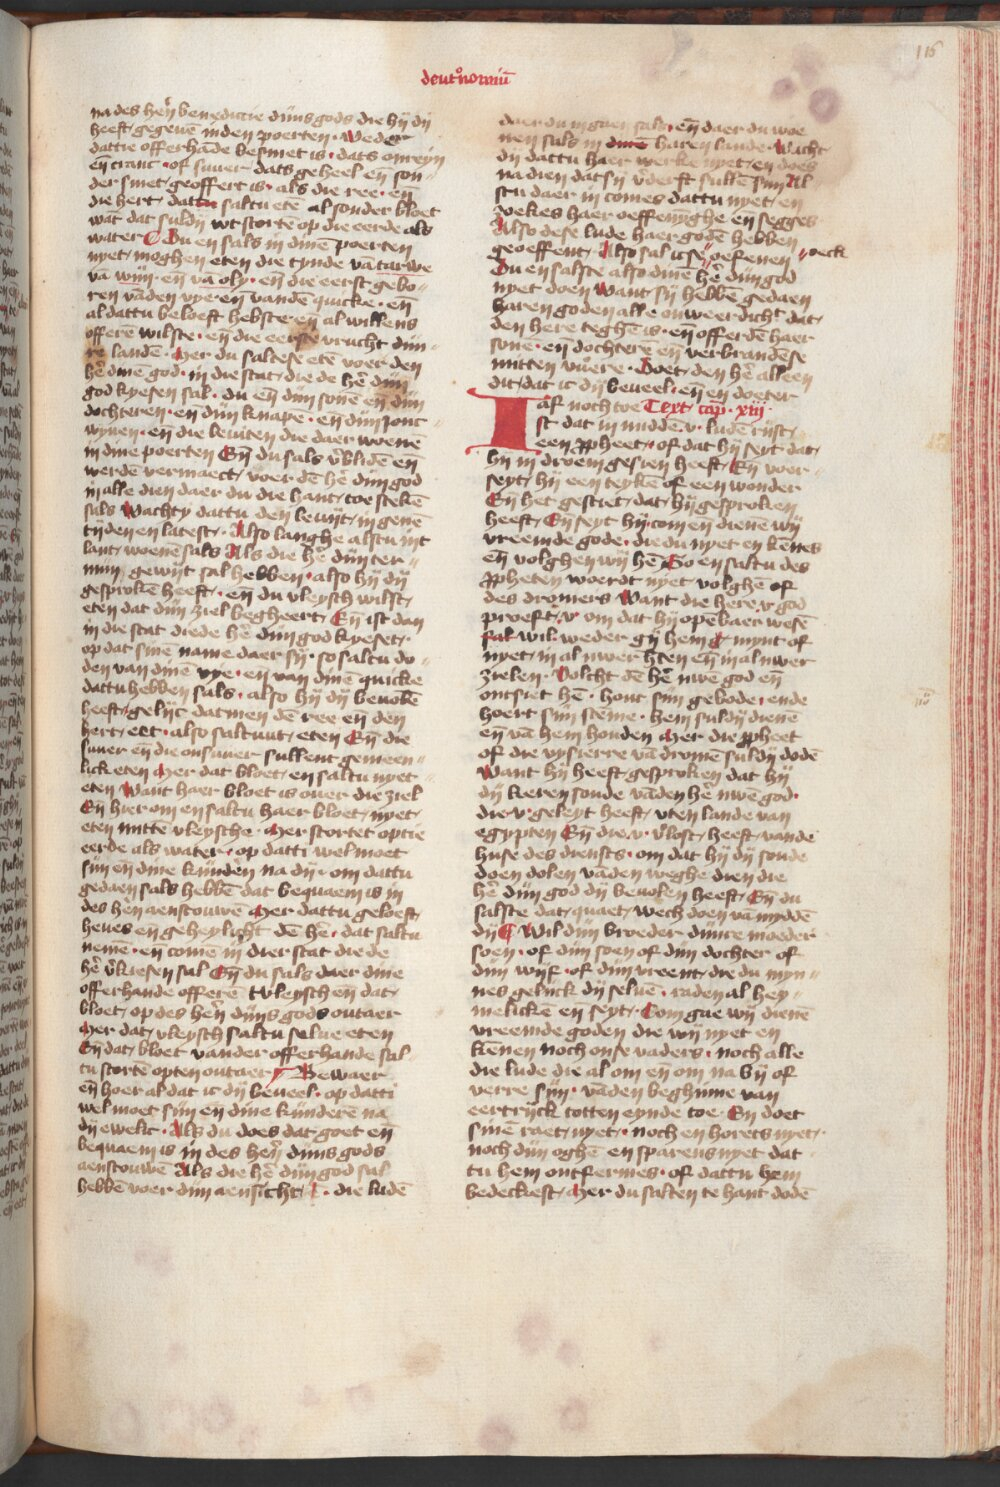 116
deut'nomiū
na des hēn benedictie dijns gods die hij dij
heeft gegeuē inden poerten · Weder
dattie offerhāde besmet is · dats onreyn
eñ cranc · of suuer dats geheel eñ son
der smet geoffert is · als die ree · eñ
die hert dattu saltu etē al sonder bloet
wāt dat suldij wt stortē op die eerde als
water Du en sals in dinē poerten
nyet moghen eten die tynde vā tarwe
vā wijn · eñ vā oly · eñ die eerst gebo
ren vāden vye · eñ vandē quicke · eñ
al dattu beloeft hebste · eñ al willens
offerē wilste · eñ die eerste vrucht dijn
re landē · Mer du saltese etē voer den
hē dinē god · in die stat die de hē dijn
god kyesen sal · du eñ dijn sonē eñ dijn
dochteren · eñ dijn knape · eñ dijn jonc
wyuen · eñ die leuiten die daer wonē
in dine poerten Eñ du sals v̄blidē eñ
werdē vermaect voer dē hē dijn god
in alle dien daer du die hant toe stekē
sals Wacht dij dattu den leuijt in genē
tijden en latest · Also langhe alstu int
lant woenē sals Als die hē dijn ter
mijn gewijt sal hebben · also hij dij
gesprokē heeft · eñ du vleysch wilst
eten dat dijn ziel begheert Eñ ist dan
in die stat die de hē dijn god kyeset
op dat sine name daer sij · so saltu do
den van dinē vye · eñ van dinē quicke
dattu hebben sals · also hij dij beuolē
heeft gelijc datmen dē ree eñ den
hert etet · also saltuut eten Eñ die
suuer eñ die onsuuer sullent gemeen
lick eten Mer dat bloet en saltu nyet
eten Want haer bloet is ouer die ziel
Eñ hier om en saltu haer bloet nyet
eten mittē vleysche · Mer stortet optie
eerde als water · op datti wel moet
sijn eñ dine kijnderē na dij · om dattu
gedaen sals hebbē dat bequaem is in
des hēn aenscouwē Mer dattu geloeft
heues eñ geheylicht dē hē · dat saltu
nemē · eñ comē in dier stat die de
hē v̄kiesen sal Eñ du sals daer dine
offerhande offerē tvleysch eñ dat
bloet op des hēn dijns gods outaer
Mer dat vleysch saltu selue eten
Eñ dat bloet vander offerhande sal
tu stortē opten outaer Bewaer
eñ hoer al dat ic dij beueel · op datti
wel moet sijn eñ dine kijnderē na
dij ewelic · Als du does dat goet eñ
bequaem is in des hēn dijns gods
aenscouwē Als die hē dijn god sal
hebbē voer dijn aensicht · die ludē
daer du in gaen sals · eñ daer du woe
nen sals in haren lande · Wacht
dij dattu haer werke nyet en does
na dien dat sij v̄derft sullē sijn Al
stu daer in comes dattu nyet en
zoekes haer oeffenijghe eñ segges
Also dese lude haer godē hebben
geoeffent Also sal icse oefenen oeck
Du en salste also dinē hē dijn god
nyet doen Want sij hebbē gedaen
haren goden alle onweerdicht dat
den here teghē is · eñ offerdē haer
sone · eñ dochterē eñ verbrandēse
mitten vuere · Doet den hē alleen
dit dat ic dij beueel · eñ en doeter
af noch toe Text cap · xiij ·
Ist dat in middē v · ludē rijst
een ꝓpheet of dat hij seyt dat
hij in droem gesien heeft Eñ voer
seyt hij een teykē of een wonder
Eñ het gesciet dat hij gesproken
heeft Eñ seyt hij com eñ dienē wij
vreemde gode · die du nyet en kēnes
eñ volghen wij hē So en saltu des
ꝓpheten woerdt nyet volghē of
des dromers Want die here v god
proeft v om dat hij openbaer wesē
sal wil weder gij hem mynt of
nyet in al uwer hten eñ in al uwer
zielen · Volcht dē hē uwē god eñ
ontsiet hē · hout sijn gebode · ende
hoert sijn stēme · hem suldij dienē
eñ vā hem houden Mer die ꝓpheet
of die vysierre vā dromē suldij dodē
Want hij heeft gesproken dat hij
dij keren soude vāden hē uwē god ·
die v geleyt heeft vten lande van
egypten Eñ die v v̄lost heeft vande
huse des diensts · om dat hij dij soude
doen dolen vāden weghe dien die
hē dijn god dij beuolen heeft Eñ du
salste dat quaet wech doen vā myddē
dij Wil dijn broeder dijnre moeder
soen · of dijn soen of dijn dochter of
dijn wijf · of dijn vreent die du myn
nes gelijck dij seluē · raden al hey
melickē eñ seyt · Com gae wij dienē
vreemde goden die wij nyet en
kēnen noch onse vaders · noch alle
die lude die al om eñ om na bij of
verre sijn · vāden beghijnne van
eertrijck totten eynde toe · En doet
sinē raet nyet · noch en horets nyet
noch dijn oghē en sparens nyet dat
tu hem ontfermes · of dattu hem
bedeckest Mer du salten te hant dodē